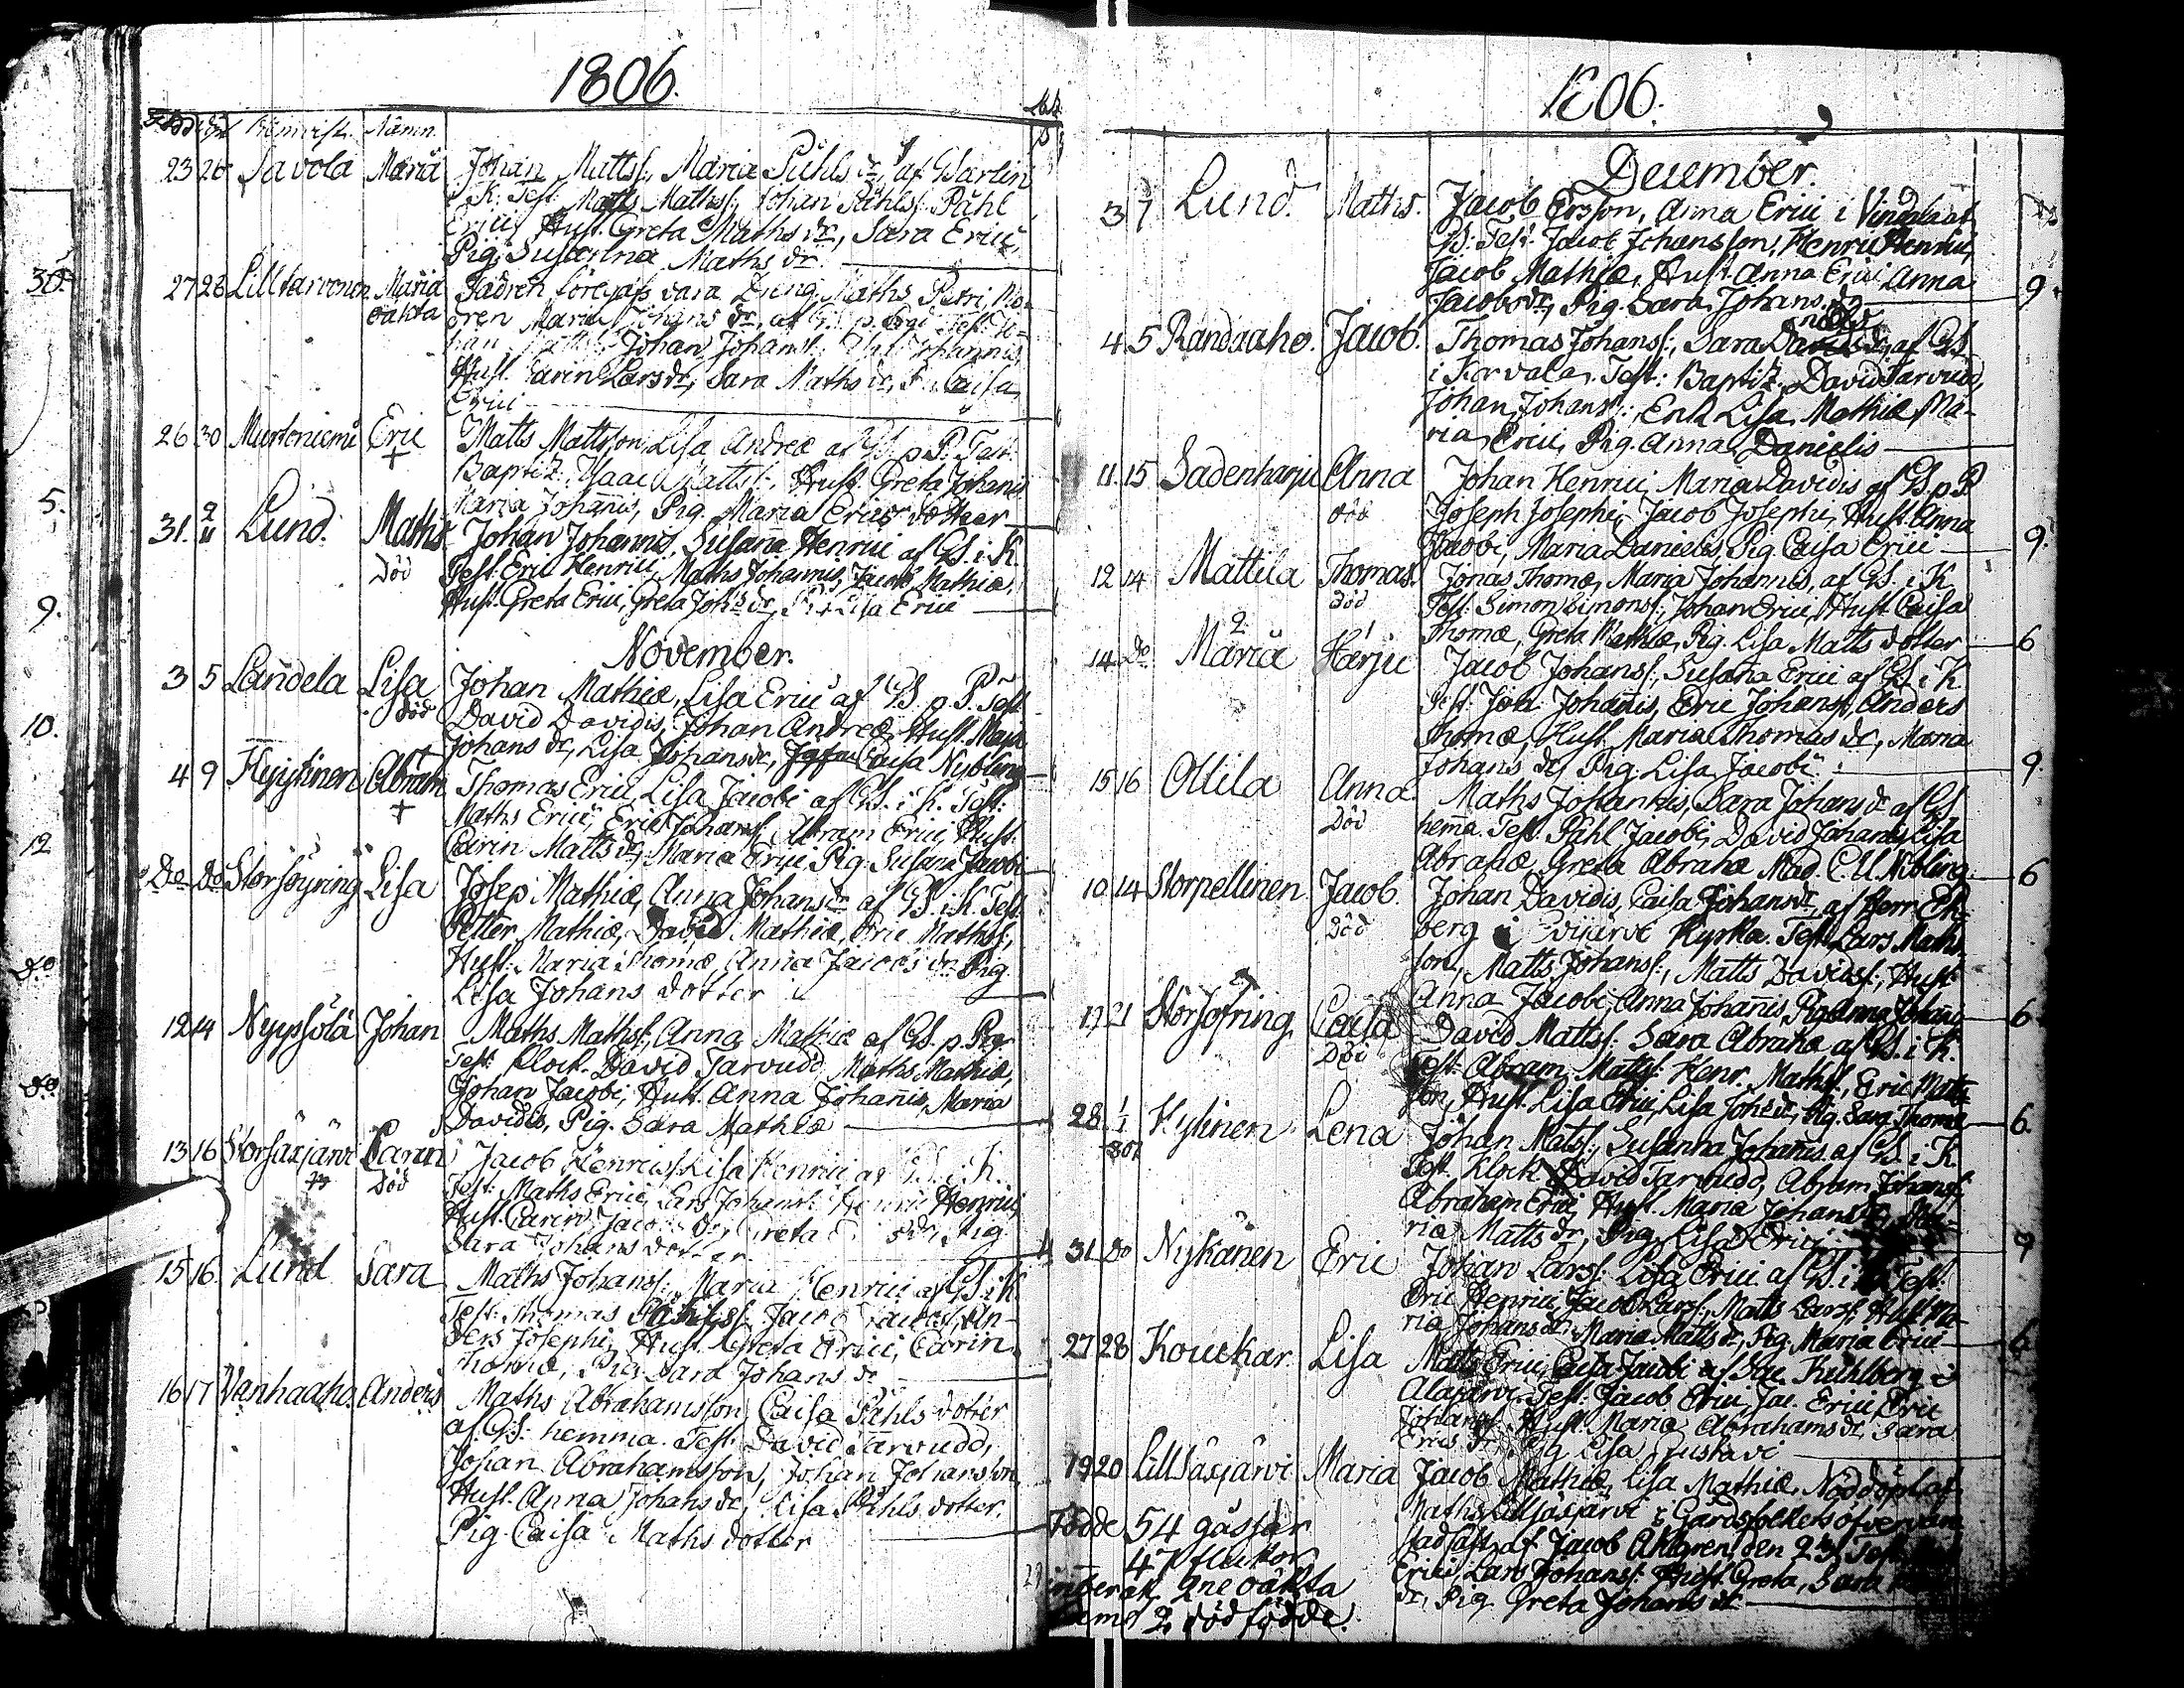 1806.
Född Döpt Hemvist. Namn.
23 26 Savola Maria Johan Matts:, Maria Påhls dr, af
K: Test Matts Mathss: Johan Påhlss: Påhl
Erici, Hust. Greta Maths dr, Sara Erici,
Pig. Susanna Maths dr.
27 28 Lilltarvonen Maria Fadren föregafs vara Dreng Maths Petri, Mo-
oäkta dren Maria Johans dr, af
Johan Johanss: Johannis
Hust. Carin Lars dr, Sara Maths dr, Caisa
Erici
26 30 Murtoniemi Eric Matts Mattsson Lisa Andreæ af GS. p P. Test.
+ Baptiz. Isaac Mattss:, Hust. Greta Johanis
Maria Johannis, Pig. Maria Erics dotter
31. 2/11 Lund. Maths Johan Johannis, Susana Henrici af GS. i K.
Död Test: Eric Henrici, Maths Johannis, Jacob Mathiæ,
Hust. Greta Erici, Greta Johs dr, Lisa Erici
November.
3 5 Landela Lisa Johan Mathiæ, Lisa Erici af GS. p P. Test
död David Davidis, Johan Andreæ, Hust. Maja
Johans dr, Lisa Johans dr, Caisa Nybling
4 9 Hyytinen Abram Thomas Erici Lisa Jacobi af GS. i K. Test:
+ Maths Erici, Eric Johanss: Abram Erici, Hust.
Carin Matts dr, Maria Erici Pig. Susana Jacobi
Do Do Storsöyring Lisa Josep Mathiæ, Anna Johans dr af GS. i K. Test.
Petter Mathiæ, David Mathiæ, Eric Mathss:,
Hust. Maria Thomæ, Anna Jacobs dr Pig.
Lisa Johans dotter
12 14 Nyyssölä Johan Maths Mathss:, Anna Mathiæ af GS. p. Pgr
Test. Klock. David Tarvudd, Maths Mathiæ,
Johan Jacobi, Hust. Anna Johannis, Maria
Davidis, Pig. Sara Mathiæ
13 16 Storsäxjärvi Carin Jacob Henricss: Lisa Henrici af GS. i K.
Död Test: Maths Erici, Lars Johanss: Henric Henrici,
Hust. Carin Jacobs dr, Greta dr, Pig
Sara Johans dotter
15 16. Lund Sara Maths Johanss: Maria Henrici af GS. i K
Test: Thomas Påhlss: Jacob An-
ders Josephi, Hust. Greta Erici, Carin
Thomæ, Pig. Sara Johans dr
16 17 Vanhaaho. Anders Maths Abrahamsson, Caisa Påhls dotter
af GS. hemma. Test: David Tarvudd,
Johan Abrahamsson, Johan Johansson,
Hust. Anna Johans dr, Lisa Påhls dotter.
Pig Caisa Maths dotter
1806.
December.
3 7 Lund. Maths. Jacob Ersson, Anna Erici i Vindala af
GS: Test. Jacob Johansson, Henric Henrici,
Jacob Mathiæ, Hust. Anna Erici Anna
Jacobs dr, Pig. Sara Johans dr 9.
4 5 Randaaho. Jacob. Thomas Johanss:, Sara dr, af GS
i Korvala. Test: Baptiz. David Tarvudd,
Johan Johanss:, Enk. Lisa Mathiæ, Ma-
ria Erici, Pig. Anna Danielis
11. 15 Sadenharju Anna Johan Henrici, Maria Davidis af GS. p P
död Joseph Josephi, Jacob Josephi, Hust. Anna
Jacobi, Maria Danielis, Pig. Caisa Erici 9.
12 14 Mattila Thomas. Jonas Thomæ, Maria Johannis, af GS. i K
död Test: Simon Simonss:, Johan Erici, Hust. Caisa
Thomæ, Greta Mathiæ, Pig. Lisa Matts dotter 6
14 Do 2 Maria 1 Harju Jacob Johanss: Susana Erici af GS. i K
Test. Joh. Johannis, Eric Johanss:, Anders
Thomæ, Hust. Maria Thomas dr, Maria
Johans dr, Pig. Lisa Jacobi 9.
15 16 Ollila Anna Maths Johannis, Sara Johans dr af GS
Död hemma. Test. Påhl Jacobi, David Johannis, Lisa
Abrahæ Greta Abrahæ Mad. C. U. Nibling 6
10 14 Storpellinen Jacob. Johan Davidis, Caisa Johans dr, af Herr Ek-
Död berg i Evijärvi Kyrka. Test. Lars Maths-
son, Matts Johanss:, Matts Davidss:, Hust.
Anna Jacobi, Anna Johannis, Pig Anna Johannis 6.
17 21 Storsöfring Caisa David Mattss: Sara Abrahæ af GS. i K.
Död Test: Abram Mattss: Henr. Mathss:, Eric Matts-
son, Hust. Lisa Erici, Lisa Johs dr, Pig. Sara Thomæ 6.
28 1/1 807 Kylinen Lena Johan Matss:, Susanna Johannis af GS. i K
Test. Klock David Tarvudd, Abram Johanss:,
Abraham Erici, Hust. Maria Johans dr, Ma-
ria Matts dr, Pig. Lisa Erici 9
31 Do Nykänen Eric Johan Larss: Lisa Erici af GS. i K Test:
Eric Henrici, Jacob Larss: Matts Larss:, Hust Ma-
ria Johans dr, Maria Matts dr, Pig. Maria Erici 6
27 28 Kouckar. Lisa Matts Erici, Caisa Jacobi af Sac. Kuhlberg i
Alajärvi. Test: Jacob Erici, Jac. Erici, Eric
Johanss: Hust. Maria Abrahams dr, Sara
Erics dr, Pig Lisa Gustavi
19 20 Lillsäxjärvi Maria Jacob Mathiæ, Lisa Mathiæ, Nöddöpt af
Maths Lillsäxjärvi i Gårdsfolkets öfvervaro
stadfäst af Jacob Ahlgren den 23. Test.
Erici, Lars Johanss: Hust. Greta, Sara
dr, Pig. Greta Johans dr
Födde 54 gåssar
47 flickor
inberäk. 2ne oäkta
samt 2 dödfödde.